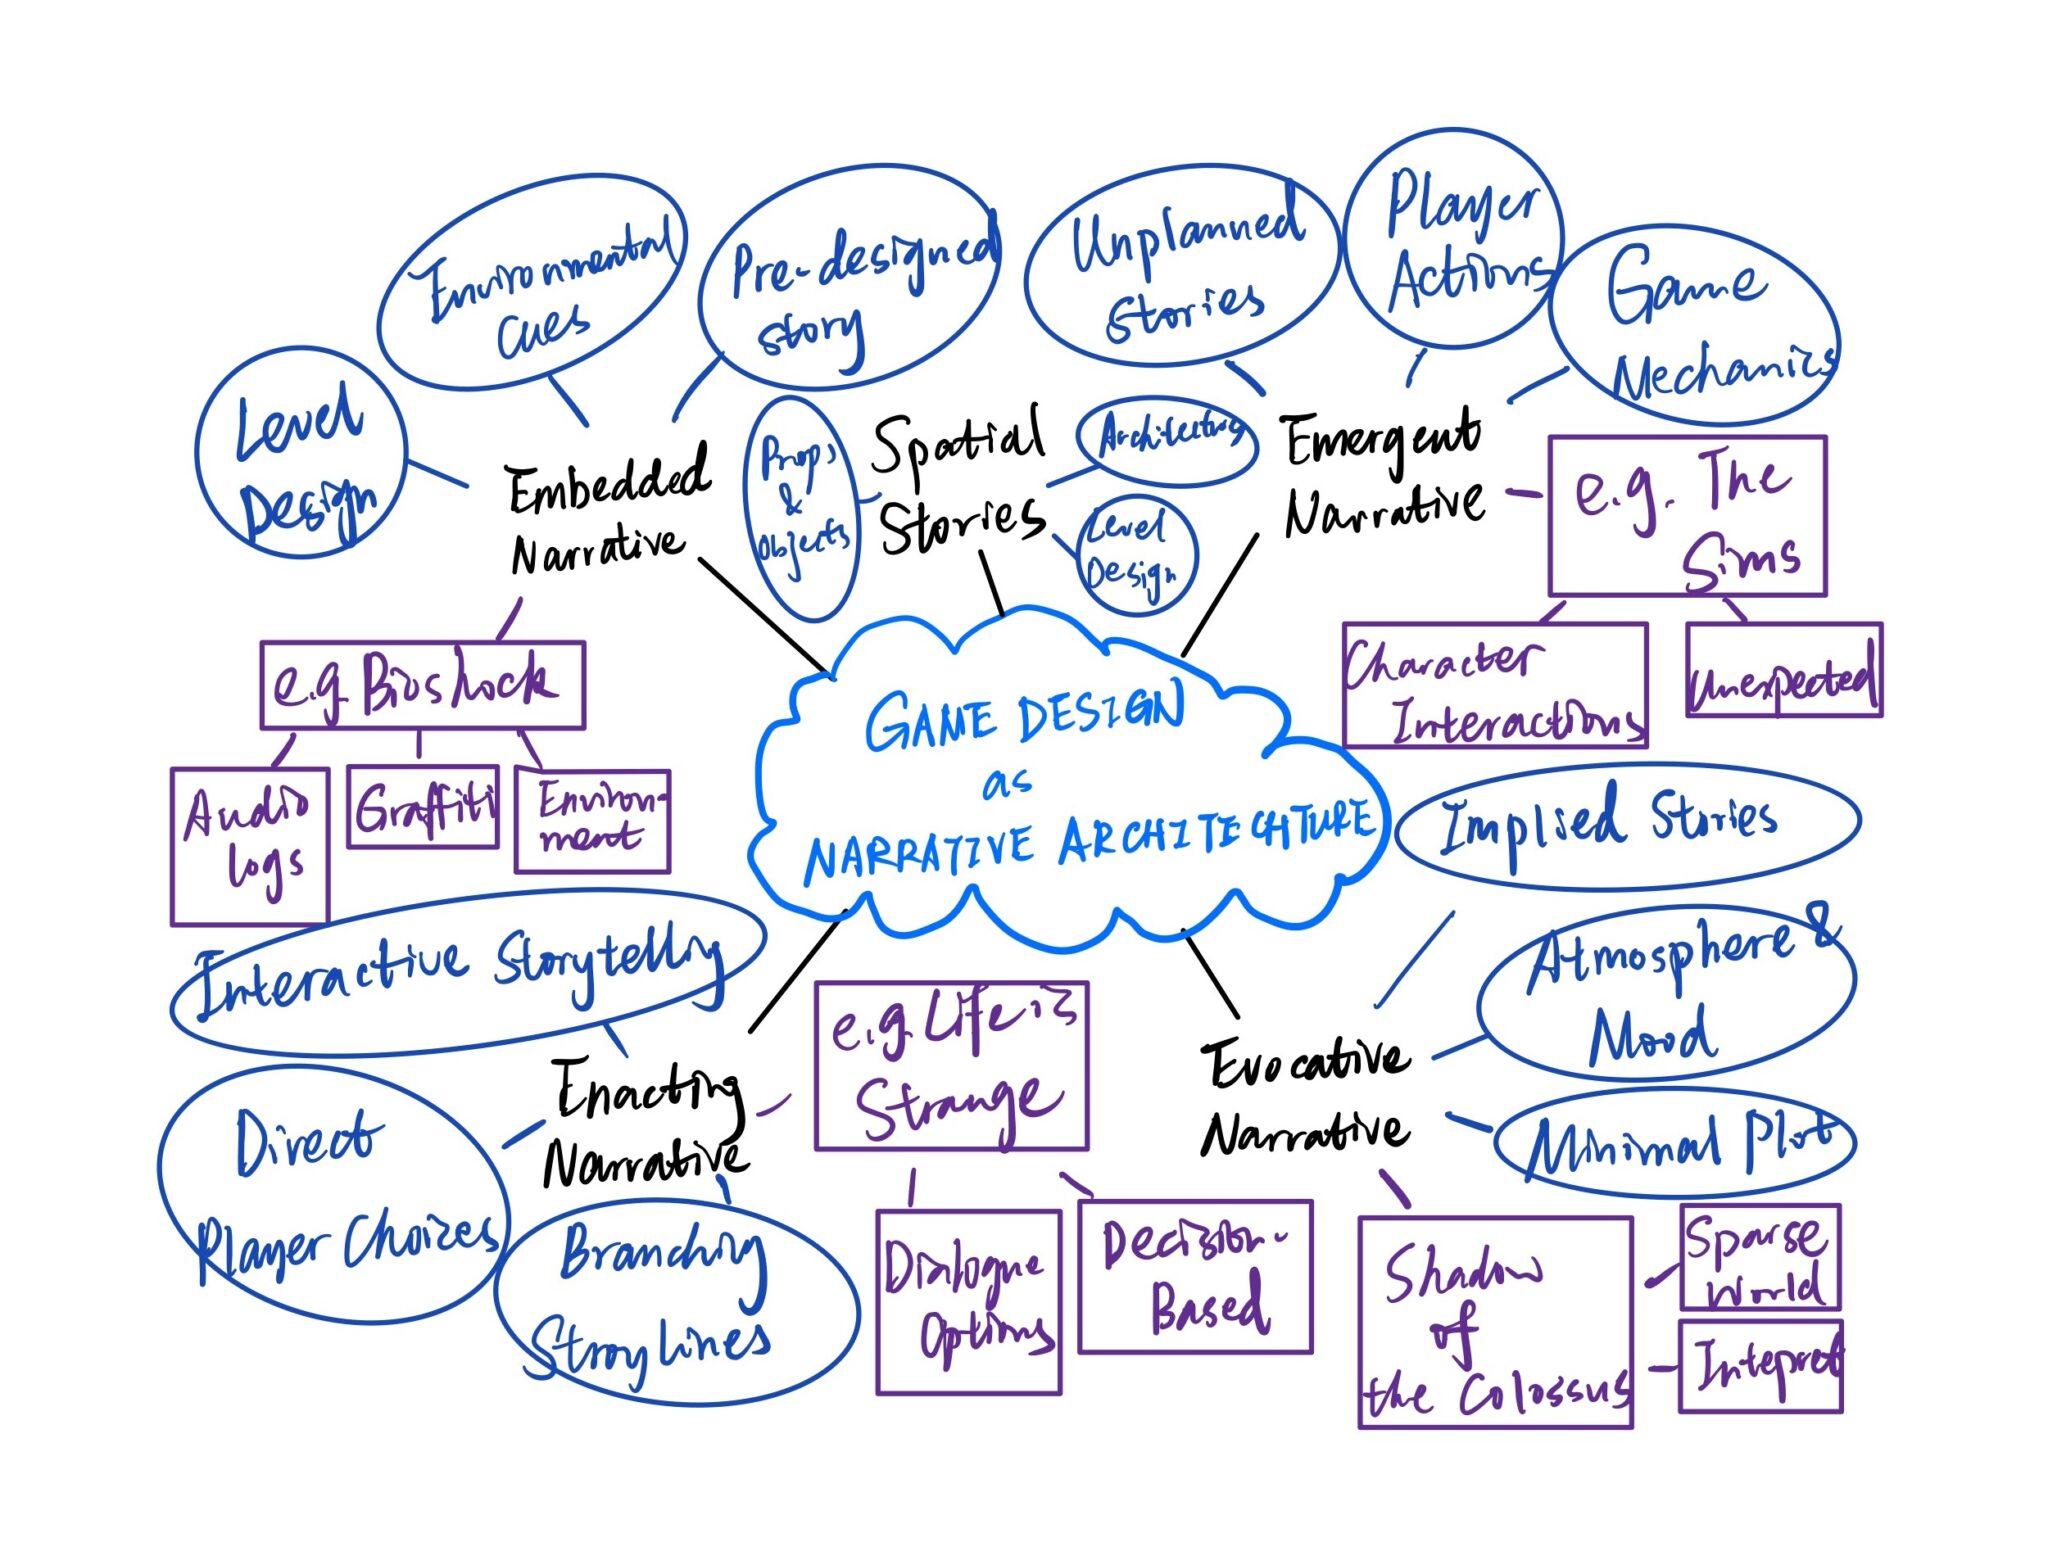 GAME DESIGN
as
NARRATIVE ARCHITECHTURE
Embedded
Narrative
Level
Design
Environmental
cues
Pre-designed
story
e.g. Bioshock
Audio
logs
Graffiti
Environ-
ment
Spatial
Stories
Props
&
objects
Architecture
Level
Design
Emergent
Narrative
Unplanned
Stories
Player
Actions
Game
Mechanics
e.g. The
Sims
Character
Interactions
Unexpected
Evocative
Narrative
Implied Stories
Atmosphere &
Mood
Minimal Plot
Shadow
of
the Colossus
Sparse
World
Intepret
Enacting
Narrative
Interactive Storytelling
Direct
Player Choices
Branching
Stroylines
e.g. Life is
Strange
Dialogue
Options
Decision-
Based